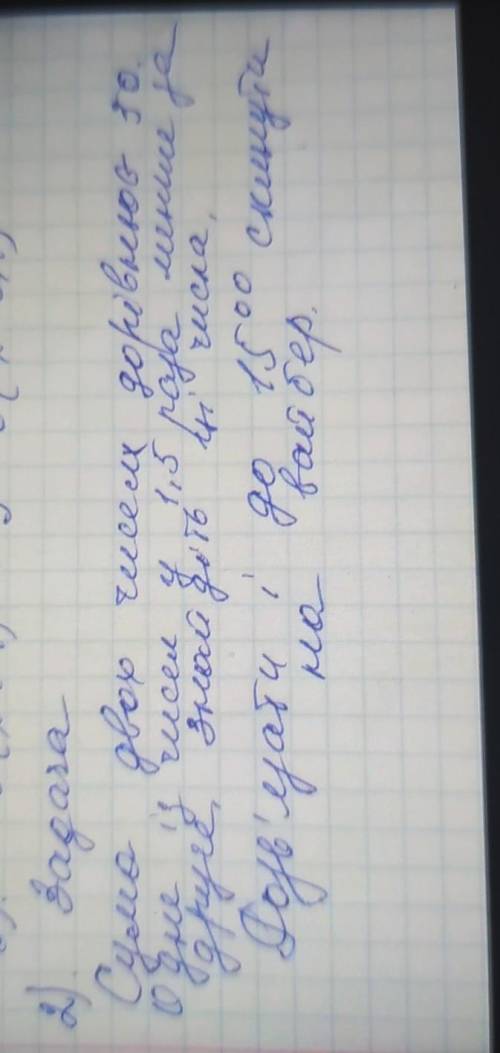 2) Задача
Сума двох чисел дорівнює 50.
Одне із чисел у 1,5 раза менше за
друге. Знайдіть ці числа.
Розв'язати і до 15⁰⁰ скинути
на вайбер.